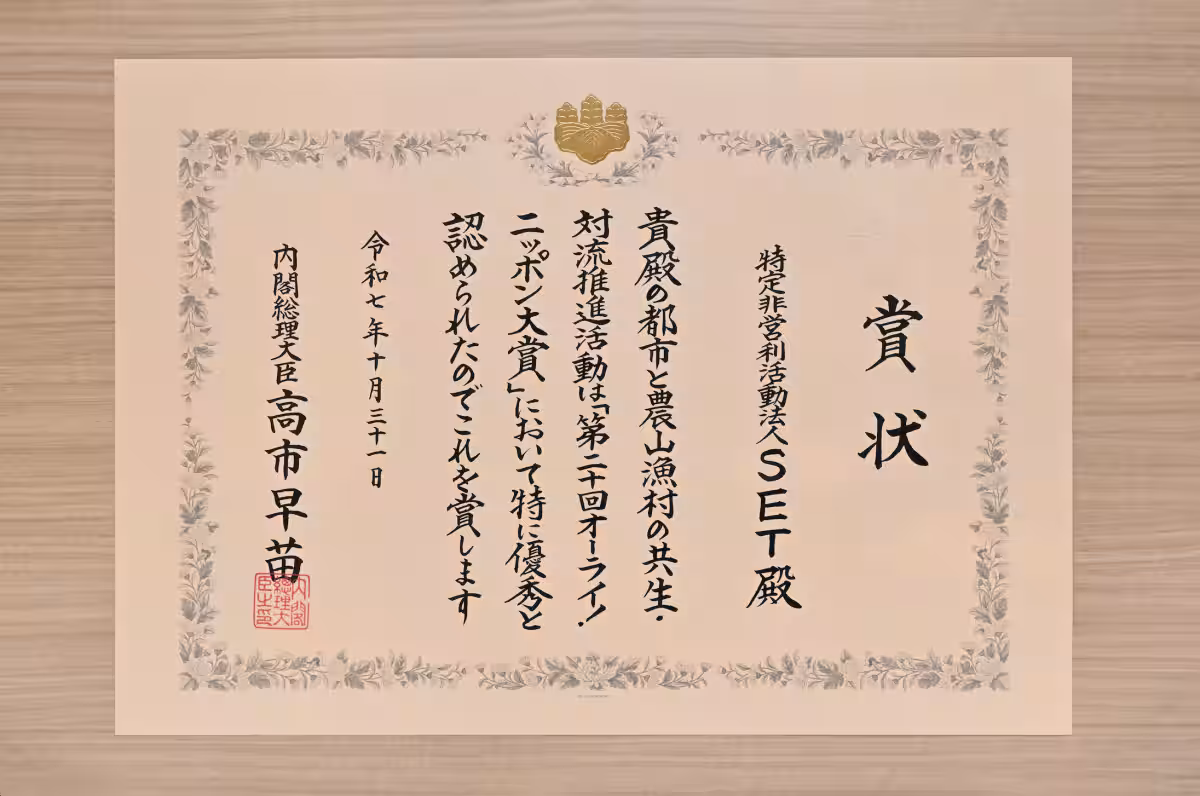 賞状
特定非営利活動法人SET殿
貴殿の都市と農山漁村の共生・
対流推進活動は「第二十回オーライ！
ニッポン大賞」において特に優秀と
認められたのでこれを賞します
令和七年十月三十一日
内閣総理大臣 高市早苗
内閣
総理大
臣之印